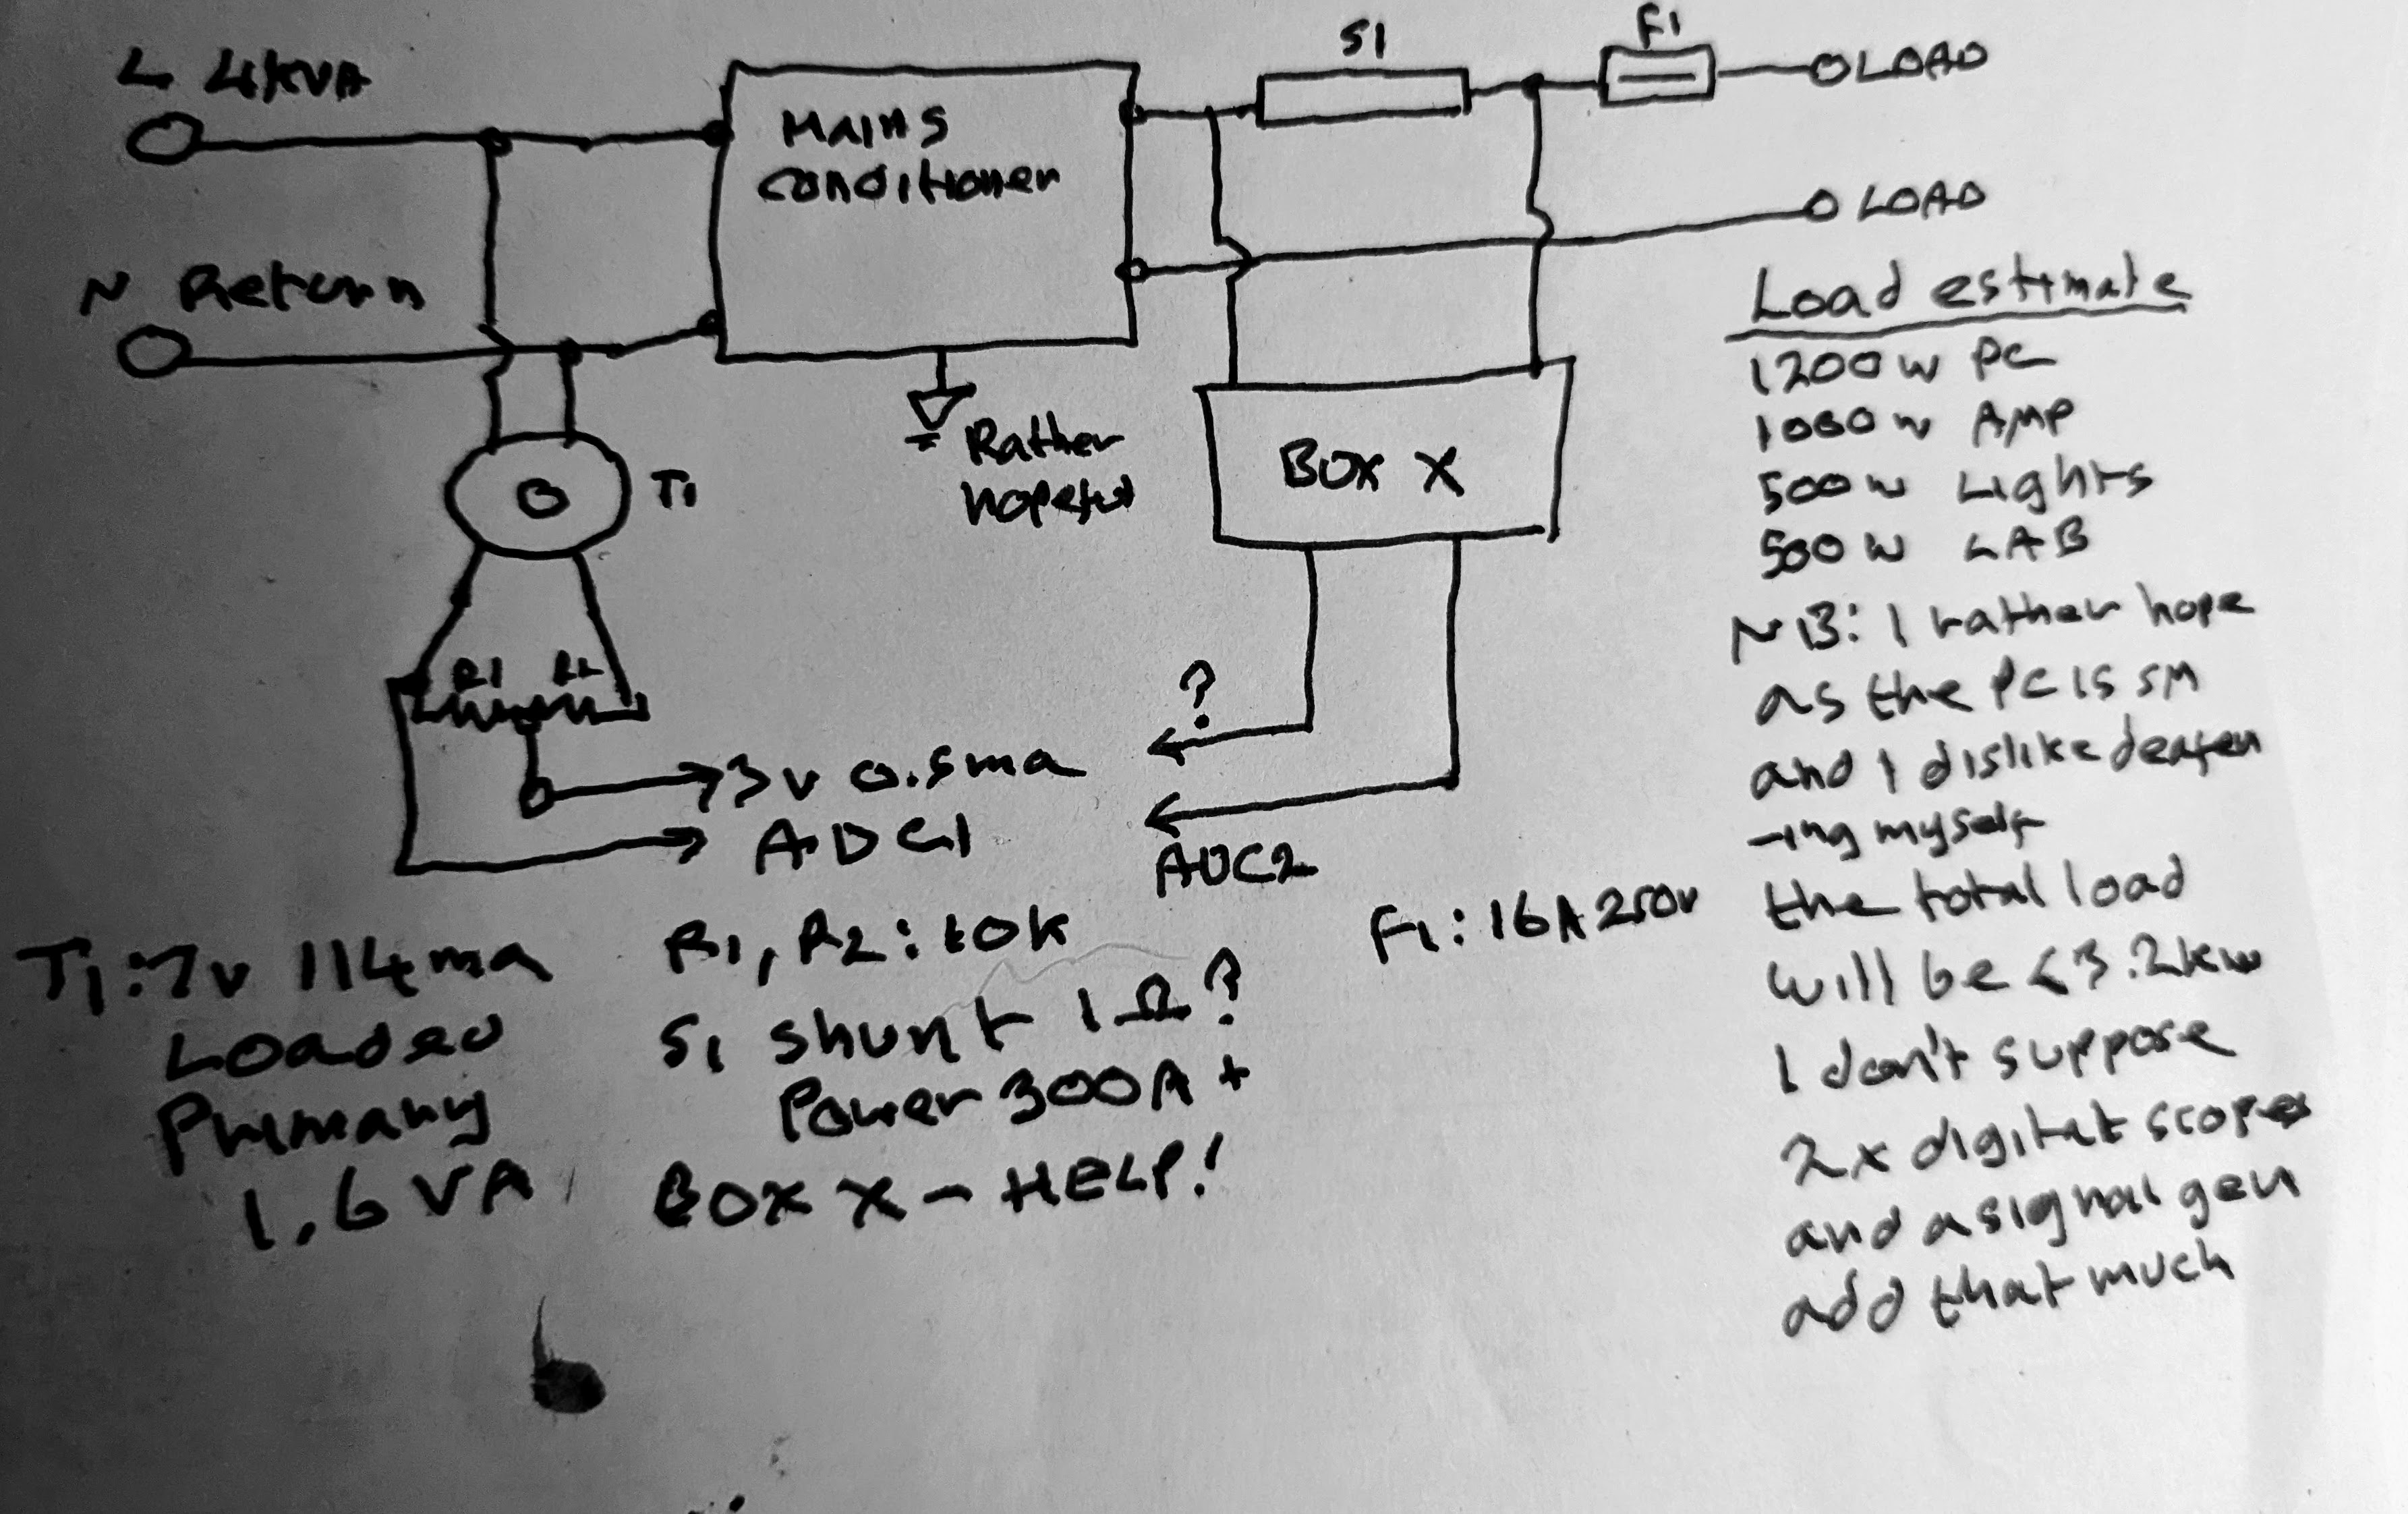 L 4kVA
N Return
Mains
conditioner
S1
F1
LOAD
LOAD
Rather
hopeful
T1
BOX X
R1 R2
?
3v 0.5ma
ADC1
ADC2
T1: 7v 114ma
Loaded
Primary
1.6 VA
R1, R2: 10k
S1 shunt 1Ω?
Power 300A +
BOX X - HELP!
F1: 16A 250v
Load estimate
1200w PC
1000w AMP
500w Lights
500w LAB
NB: I rather hope
as the PC is SM
and I dislike deafen
-ing myself
the total load
will be < 3.2kw
I don't suppose
2x digital scopes
and a signal gen
add that much